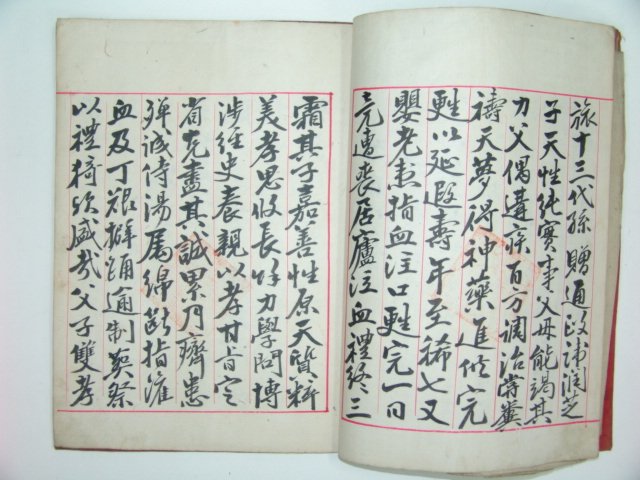 旅十三代孫贈通政諱潤芝
子天性純實事父母能竭其
力父偶遘疾百方調治嘗糞
禱天夢得神藥進候完
甦以延遐壽年至稀七又
嬰老恙指血注口甦完一日
竟遭喪居廬泣血禮終三
霜其子嘉善性原天質粹
美孝思收長好力學問博
涉經史養親以孝甘旨定
省克盡其誠累乃齊患
殫誠侍湯屬綿斷指灌
血及丁艱擗踊逾制葬祭
以禮猗歟盛哉父子雙孝